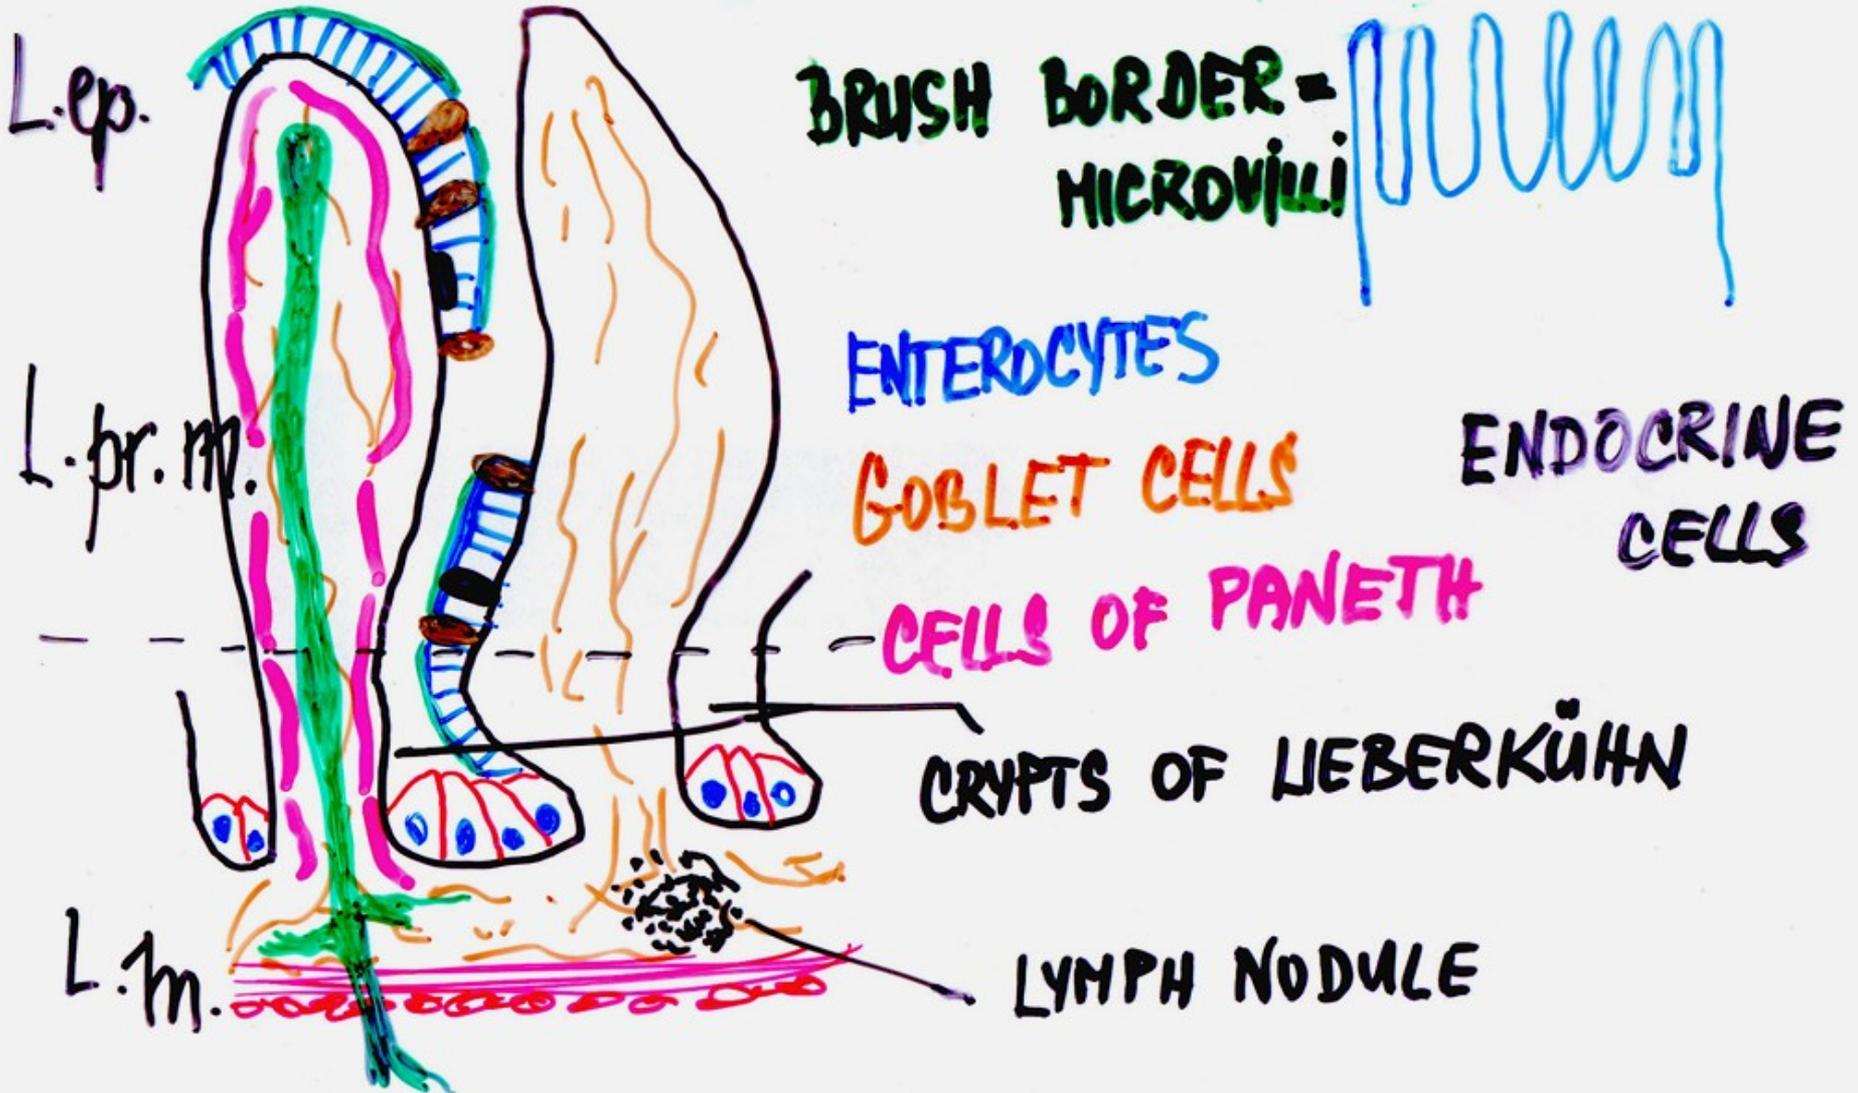 L.ep.
BRUSH BORDER =
MICROVILLI
ENTEROCYTES
L.pr.m.
GOBLET CELLS
ENDOCRINE
CELLS
CELLS OF PANETH
CRYPTS OF LIEBERKÜHN
L.m.
LYMPH NODULE